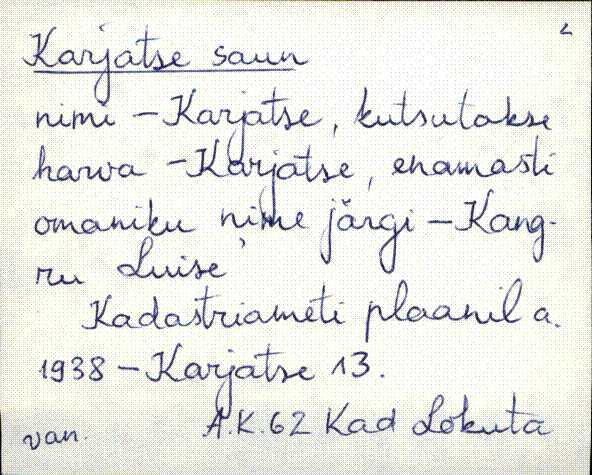 Karjatse saun
nimi – Karjatse, kutsutakse
harva – Karjatse, enamasti
omaniku nime järgi – Kang-
ru Luise
Kadastriameti plaanil a.
1938 – Karjatse 13.
van. A.K. 62 Kad Lokuta